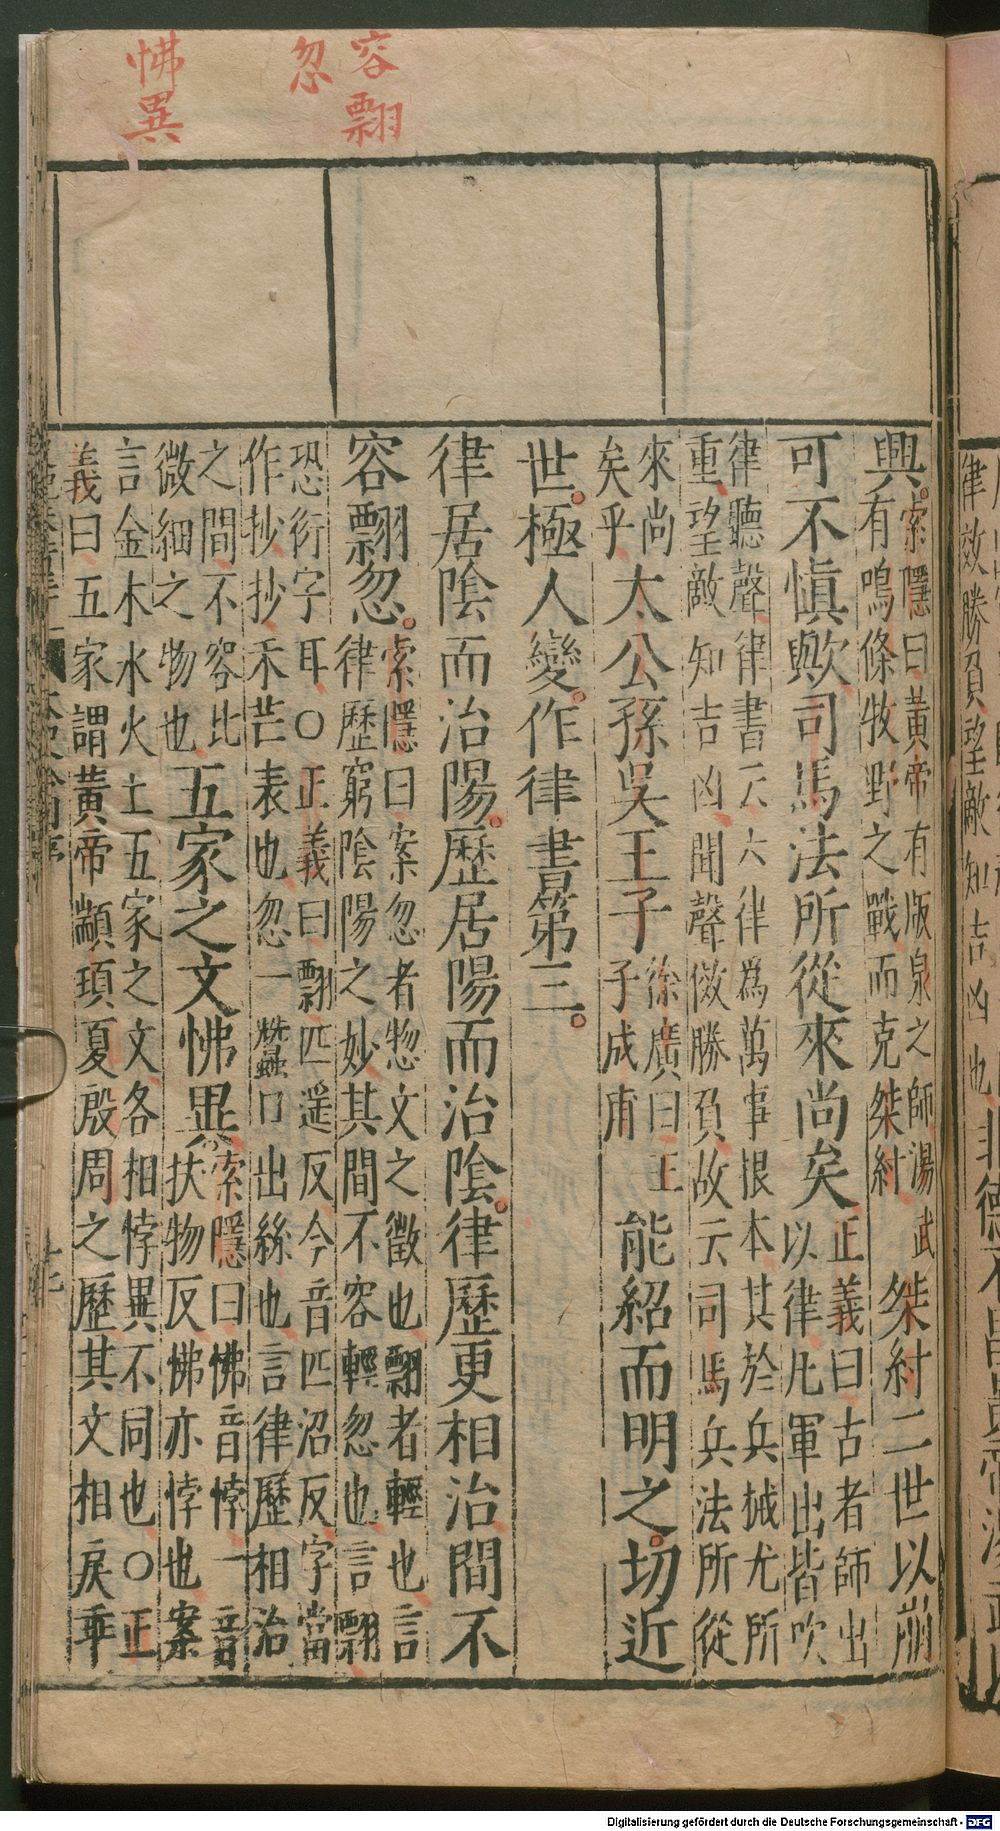 容飄
忽
怫異
興索隱曰黃帝有版泉之師湯武
有鳴條牧野之戰而克桀紂桀紂二世以崩
可不慎歟司馬法所從來尚矣正義曰古者師出
以律凡軍出皆吹
律聽聲律書云六律爲萬事根本其於兵械尤所
重望敵知吉凶聞聲傚勝負故云司馬兵法所從
來尚
矣乎太公孫吳王子徐廣曰王
子成甫能紹而明之切近
世極人變作律書第三
律居陰而治陽歷居陽而治陰律歷更相治間不
容飄忽索隱曰案忽者惣文之微也飄者輕也言
律歷窮陰陽之妙其間不容輕忽也言飄
恐衍字耳○正義曰飄匹遥反今音匹沼反字當
作抄抄禾芒表也忽一蠶口出絲也言律歷相治
之間不容比
微細之物也五家之文怫異索隱曰怫音悖一音
扶物反怫亦悖也案
言金木水火土五家之文各相悖異不同也○正
義曰五家謂黃帝顓頊夏殷周之歷其文相戾乖
律效勝負望敵知吉凶也非德不昌黃帝湯武
Digitalisierung gefördert durch die Deutsche Forschungsgemeinschaft - DFG